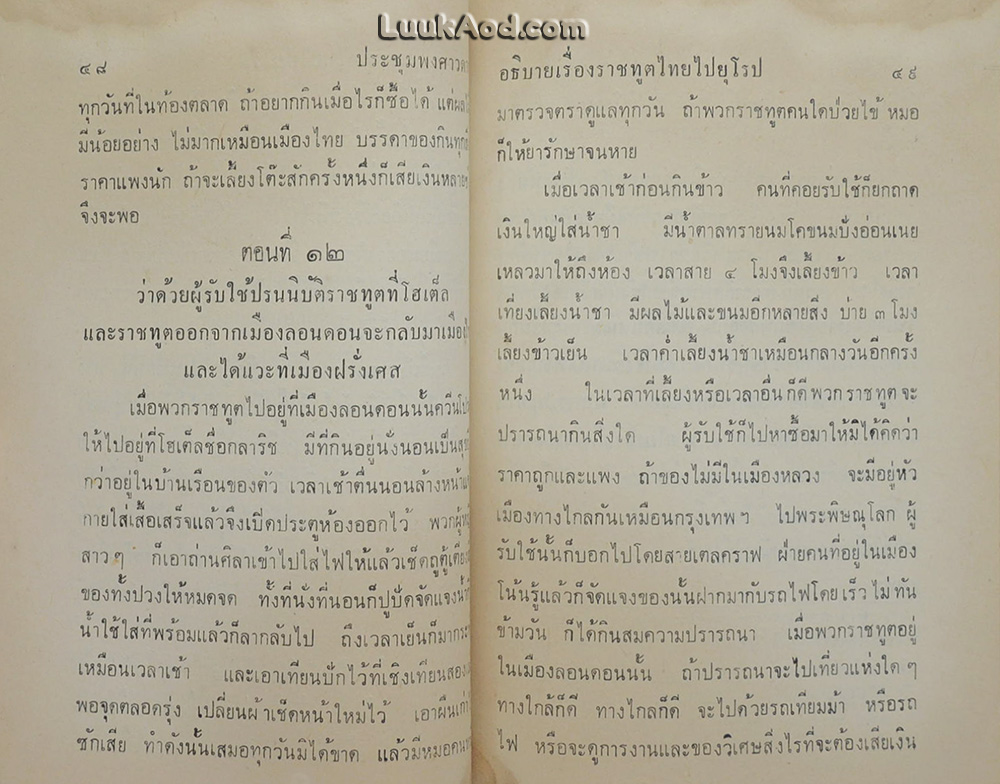 LuukAod.com
๔๘ ประชุมพงศาวดา
ทุกวันที่ในท้องตลาด ถ้าอยากกินเมื่อไรก็ซื้อได้ แต่ผลไ
มีน้อยอย่าง ไม่มากเหมือนเมืองไทย บรรดาของกินทุก
ราคาแพงนัก ถ้าจะเลี้ยงโต๊ะสักครั้งหนึ่งก็เสียเงินหลาย
จึงจะพอ
ตอนที่ ๑๒
ว่าด้วยผู้รับใช้ปรนนิบัติราชทูตที่โฮเต็ล
และราชทูตออกจากเมืองลอนดอนจะกลับมาเมือ
และได้แวะที่เมืองฝรั่งเศส
เมื่อพวกราชทูตไปอยู่ที่เมืองลอนดอนนั้นควีนโป
ให้ไปอยู่ที่โฮเต็ลชื่อกลาริช มีที่กินอยู่นั่งนอนเป็นสุข
กว่าอยู่ในบ้านเรือนของตัว เวลาเช้าตื่นนอนล้างหน้า
กายใส่เสื้อเสร็จแล้วจึงเปิดประตูห้องออกไว้ พวกผู้ห
สาวๆ ก็เอาถ่านศิลาเข้าไปใส่ไฟให้แล้วเช็ดถูตู้เตีย
ของทั้งปวงให้หมดจด ทั้งที่นั่งที่นอนก็ปูปัดจัดแจง
น้ำใช้ใส่ที่พร้อมแล้วก็ลากลับไป ถึงเวลาเย็นก็มากระ
เหมือนเวลาเช้า และเอาเทียนปักไว้ที่เชิงเทียนสอง
พอจุดตลอดรุ่ง เปลี่ยนผ้าเช็ดหน้าใหม่ไว้ เอาผืนเก่า
ซักเสีย ทำดังนั้นเสมอทุกวันมิได้ขาด แล้วมีหมอคน
อธิบายเรื่องราชทูตไทยไปยุโรป ๔๙
มาตรวจตราดูแลทุกวัน ถ้าพวกราชทูตคนใดป่วยไข้ หมอ
ก็ให้ยารักษาจนหาย
เมื่อเวลาเช้าก่อนกินข้าว คนที่คอยรับใช้ก็ยกถาด
เงินใหญ่ใส่น้ำชา มีน้ำตาลทรายนมโคขนมปังอ่อนเนย
เหลวมาให้ถึงห้อง เวลาสาย ๔ โมงจึงเลี้ยงข้าว เวลา
เที่ยงเลี้ยงน้ำชา มีผลไม้และขนมอีกหลายสิ่ง บ่าย ๓ โมง
เลี้ยงข้าวเย็น เวลาค่ำเลี้ยงน้ำชาเหมือนกลางวันอีกครั้ง
หนึ่ง ในเวลาที่เลี้ยงหรือเวลาอื่นก็ดีพวกราชทูตจะ
ปรารถนากินสิ่งใด ผู้รับใช้ก็ไปหาซื้อมาให้มิได้คิดว่า
ราคาถูกและแพง ถ้าของไม่มีในเมืองหลวง จะมีอยู่หัว
เมืองทางไกลกันเหมือนกรุงเทพฯ ไปพระพิษณุโลก ผู้
รับใช้นั้นก็บอกไปโดยสายเตลคราฟ ฝ่ายคนที่อยู่ในเมือง
โน้นรู้แล้วก็จัดแจงของนั้นฝากมากับรถไฟโดยเร็วไม่ทัน
ข้ามวัน ก็ได้กินสมความปรารถนา เมื่อพวกราชทูตอยู่
ในเมืองลอนดอนนั้น ถ้าปรารถนาจะไปเที่ยวแห่งใดๆ
ทางใกล้ก็ดี ทางไกลก็ดี จะไปด้วยรถเทียมม้า หรือรถ
ไฟ หรือจะดูการงานและของวิเศษสิ่งไรที่จะต้องเสียเงิน